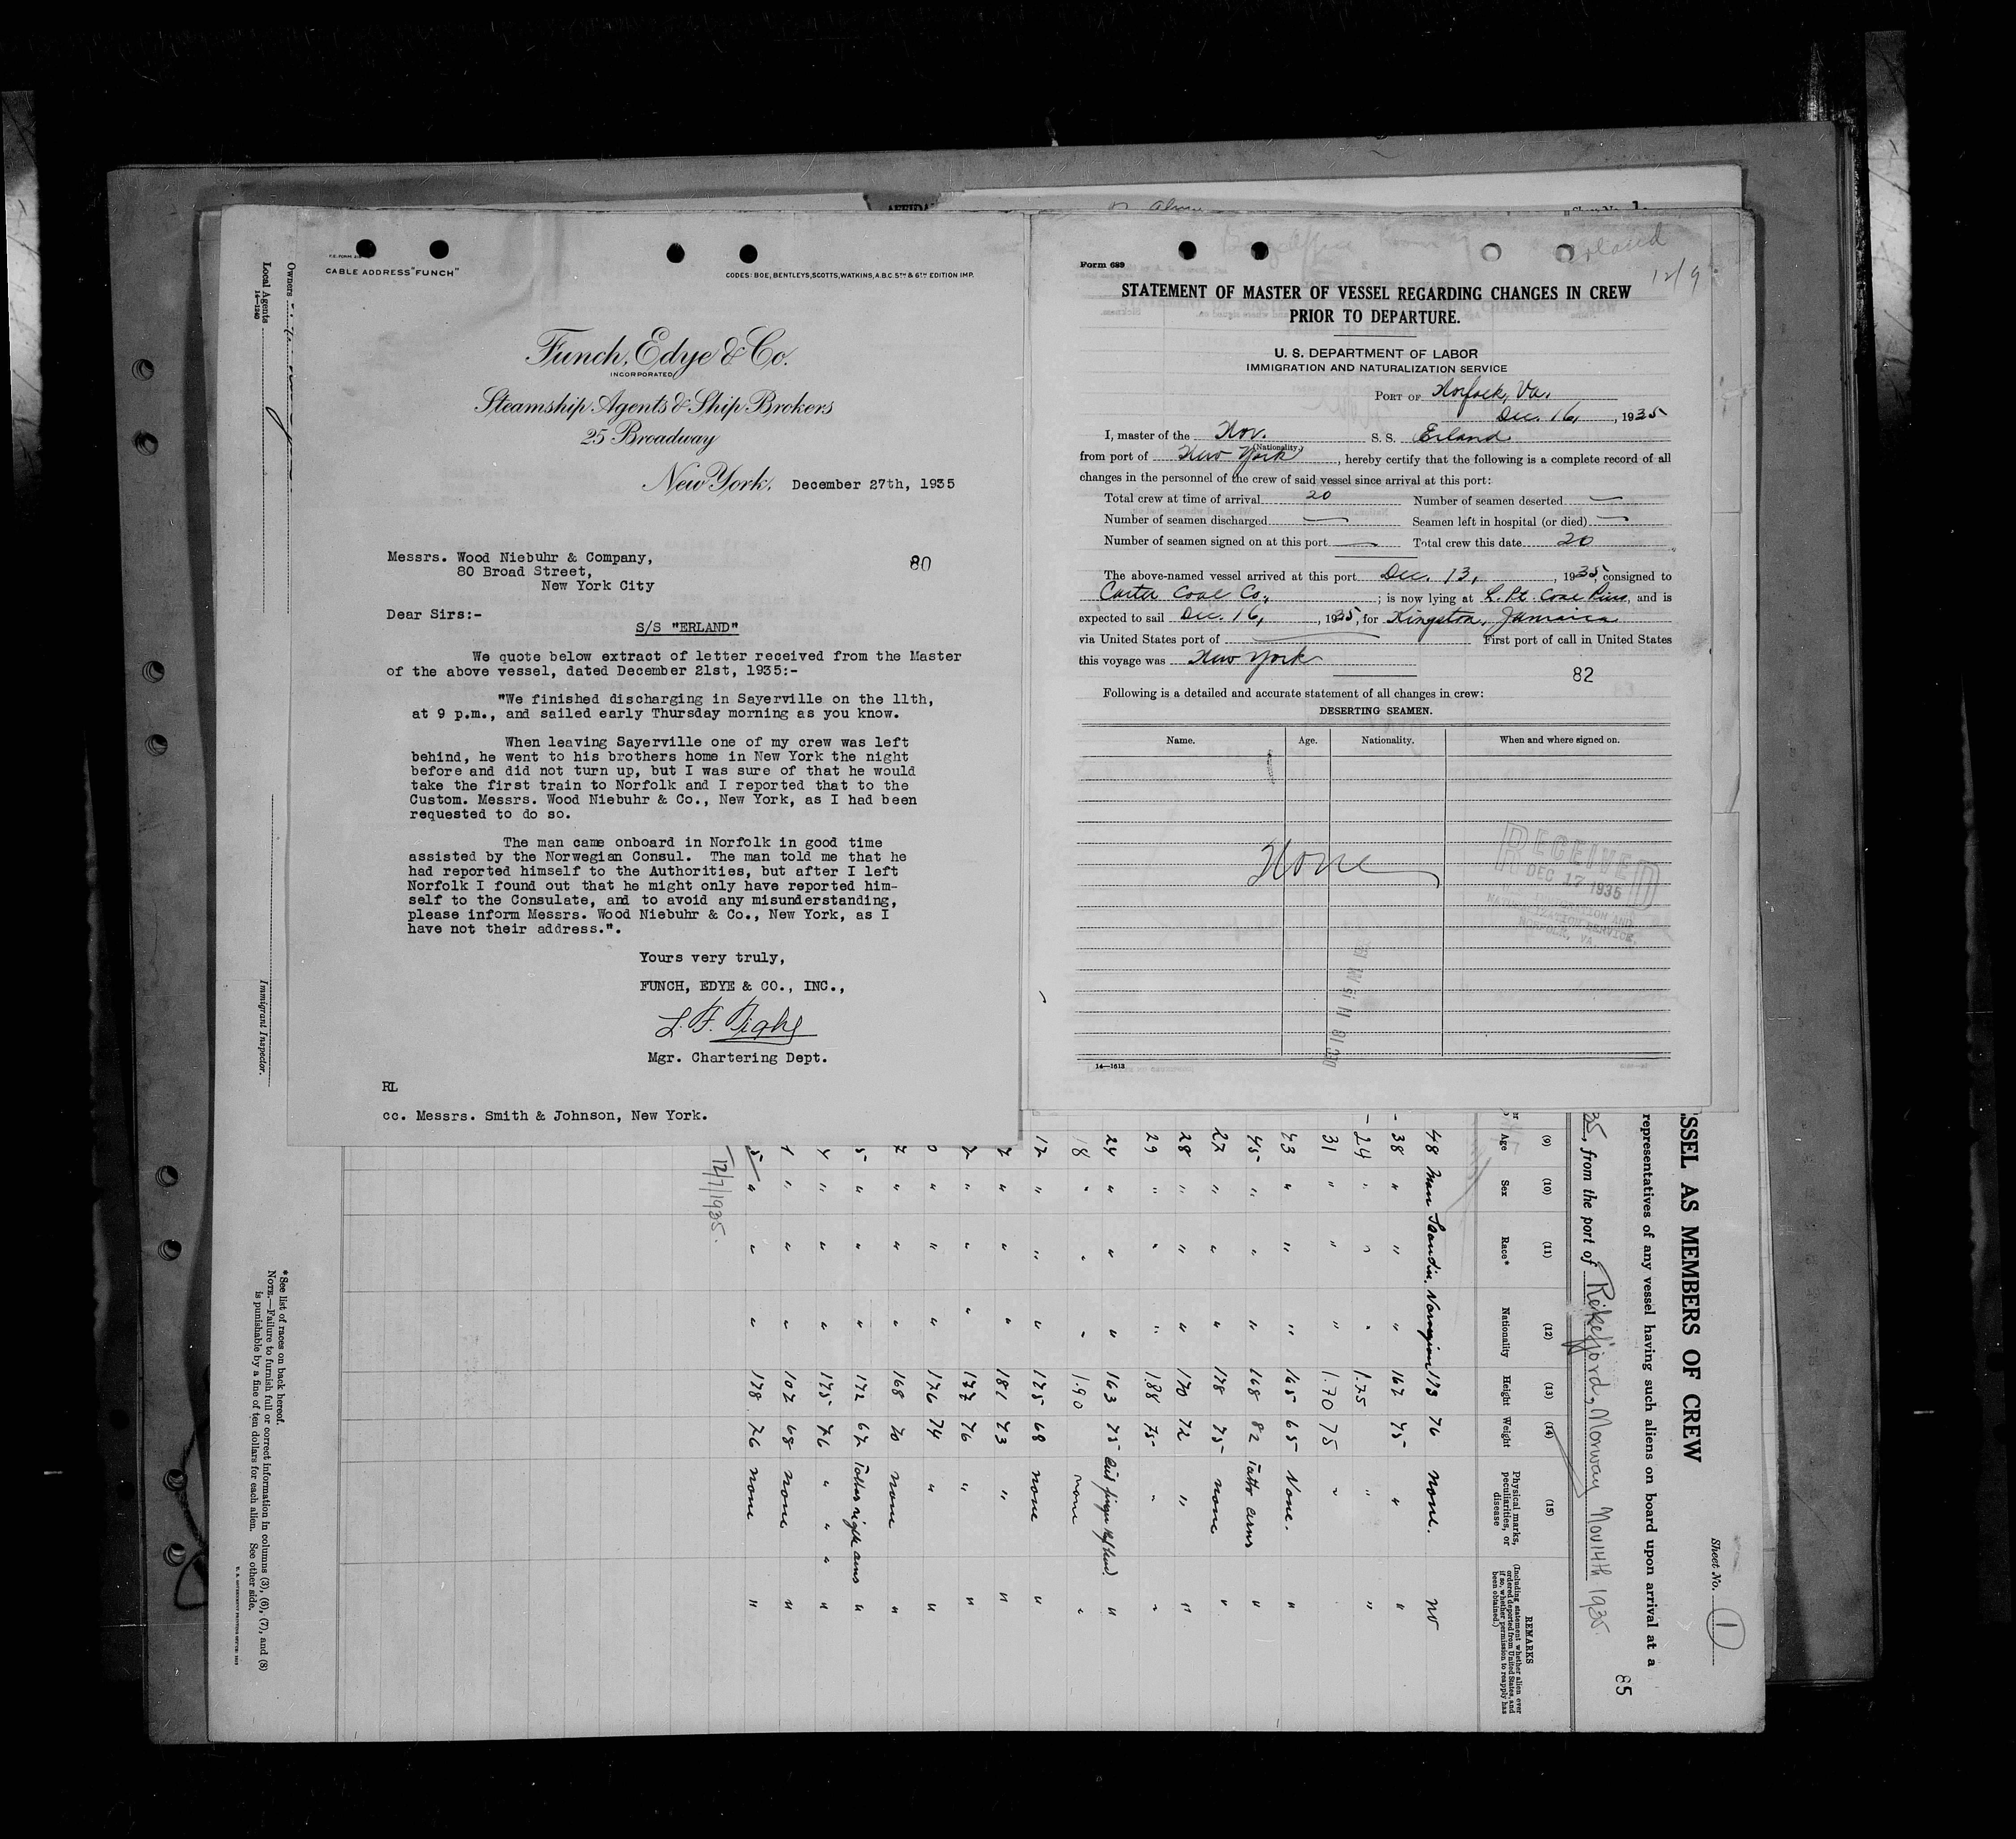 CABLE ADDRESS "FUNCH"
CODES: BOE, BENTLEYS, SCOTTS, WATKINS, A.B.C. 5TH & 6TH EDITION IMP.
Funch, Edye & Co.
INCORPORATED
Steamship Agents & Ship Brokers
25 Broadway
New York, December 27th, 1935
Messrs. Wood Niebuhr & Company,
80 Broad Street,
New York City
80
Dear Sirs:-
S/S "ERLAND"
We quote below extract of letter received from the Master
of the above vessel, dated December 21st, 1935:-
"We finished discharging in Sayerville on the 11th,
at 9 p.m., and sailed early Thursday morning as you know.
When leaving Sayerville one of my crew was left
behind, he went to his brothers home in New York the night
before and did not turn up, but I was sure of that he would
take the first train to Norfolk and I reported that to the
Custom. Messrs. Wood Niebuhr & Co., New York, as I had been
requested to do so.
The man came onboard in Norfolk in good time
assisted by the Norwegian Consul. The man told me that he
had reported himself to the Authorities, but after I left
Norfolk I found out that he might only have reported him-
self to the Consulate, and to avoid any misunderstanding,
please inform Messrs. Wood Niebuhr & Co., New York, as I
have not their address.".
Yours very truly,
FUNCH, EDYE & CO., INC.,
Mgr. Chartering Dept.
RL
cc. Messrs. Smith & Johnson, New York.
12/9
Form 689
STATEMENT OF MASTER OF VESSEL REGARDING CHANGES IN CREW
PRIOR TO DEPARTURE.
U. S. DEPARTMENT OF LABOR
IMMIGRATION AND NATURALIZATION SERVICE
PORT OF Norfolk, Va.
Dec. 16, 1935
I, master of the Nor. S. S. Erland
(Nationality)
from port of New York, hereby certify that the following is a complete record of all
changes in the personnel of the crew of said vessel since arrival at this port:
Total crew at time of arrival 20 Number of seamen deserted —
Number of seamen discharged — Seamen left in hospital (or died) —
Number of seamen signed on at this port — Total crew this date 20
The above-named vessel arrived at this port Dec. 13, 1935, consigned to
Carter Coal Co.; is now lying at L. Pt. Coal Piers, and is
expected to sail Dec. 16, 1935, for Kingston, Jamaica
via United States port of — First port of call in United States
this voyage was New York
82
Following is a detailed and accurate statement of all changes in crew:
DESERTING SEAMEN.
Name. Age. Nationality. When and where signed on.
None
RECEIVED
DEC 17 1935
IMMIGRATION AND
NATURALIZATION SERVICE,
NORFOLK, VA.
14—1613
Owners
Local Agents
14—1240
Immigrant Inspector.
Sheet No. 1
SSEL AS MEMBERS OF CREW
representatives of any vessel having such aliens on board upon arrival at a
85
35, from the port of Rekefjord, Norway Nov 14th 1935.
(9) (10) (11) (12) (13) (14) (15)
Age Sex Race* Nationality Height Weight Physical marks, peculiarities, or disease
REMARKS
(Including statement whether alien ever ordered deported from United States, and if so, whether permission to reapply has been obtained.)
48 Man Scandin. Norwegian 173 76 none. no
38 " " " 162 75 " "
24 " " " 1.75 " "
31 " " " 1.70 75 "
43 " " " 165 65 None. "
45 " " " 168 82 Tatto arms "
27 " " " 178 75 none "
28 " " " 170 72 " "
29 " " " 188 75 " "
24 " " " 163 75 "
18 " " " 1.90 none "
17 " " " 175 68 none "
" " " 181 73 " "
" " " 177 76 " "
" " " 176 74 " "
" " " 168 70 none "
" " " 172 67 Tattoo right arms "
" " " 175 76 " " " "
" " " 107 68 none "
" " " 178 76 none "
12/7/1935.
* See list of races on back hereof.
NOTE.—Failure to furnish full or correct information in columns (3), (6), (7), and (8)
is punishable by a fine of ten dollars for each alien. See other side.